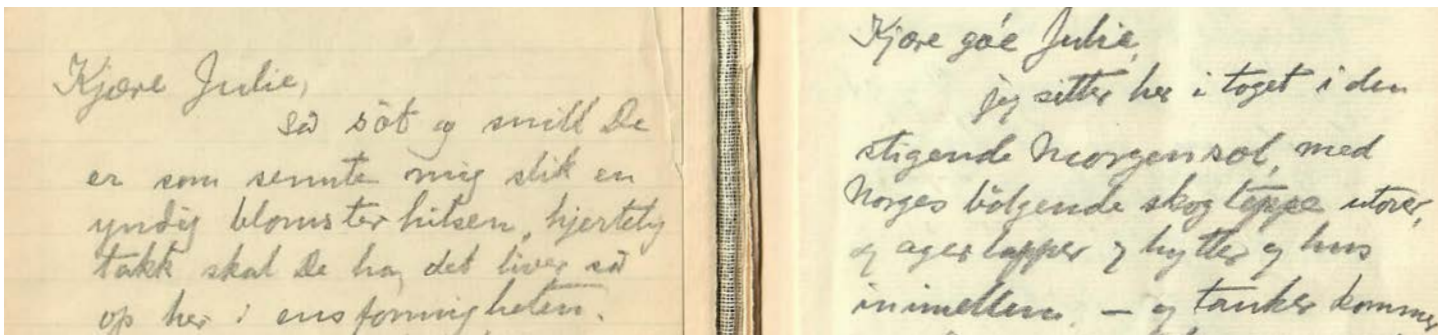 Kjære Julie,
så söt og snill De
er som sennte mig slik en
yndig blomsterhilsen, hjertelig
takk skal De ha, det liver så
op her i ensformigheten.
Kjære gó'e Julie,
jeg sitter her i toget i den
stigende morgensol, med
Norges bölgende skogteppe utover,
og agerlapper og hytter og hus
inimellem. — og tanker kommer